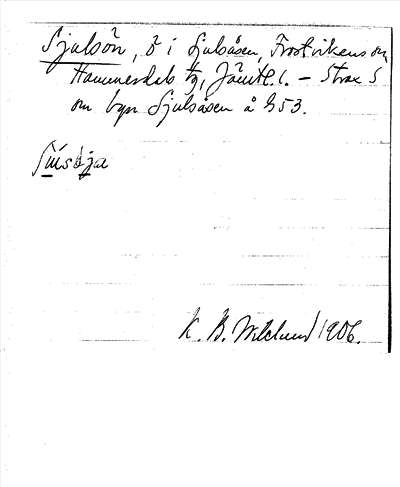 Sjulsön, ö i Sjulsåsen, Frostvikens sn,
Hammerdals tg, Jämtl. l. – Strax S
om byn Sjulsåsen å G53.
K. B. Wiklund 1906.